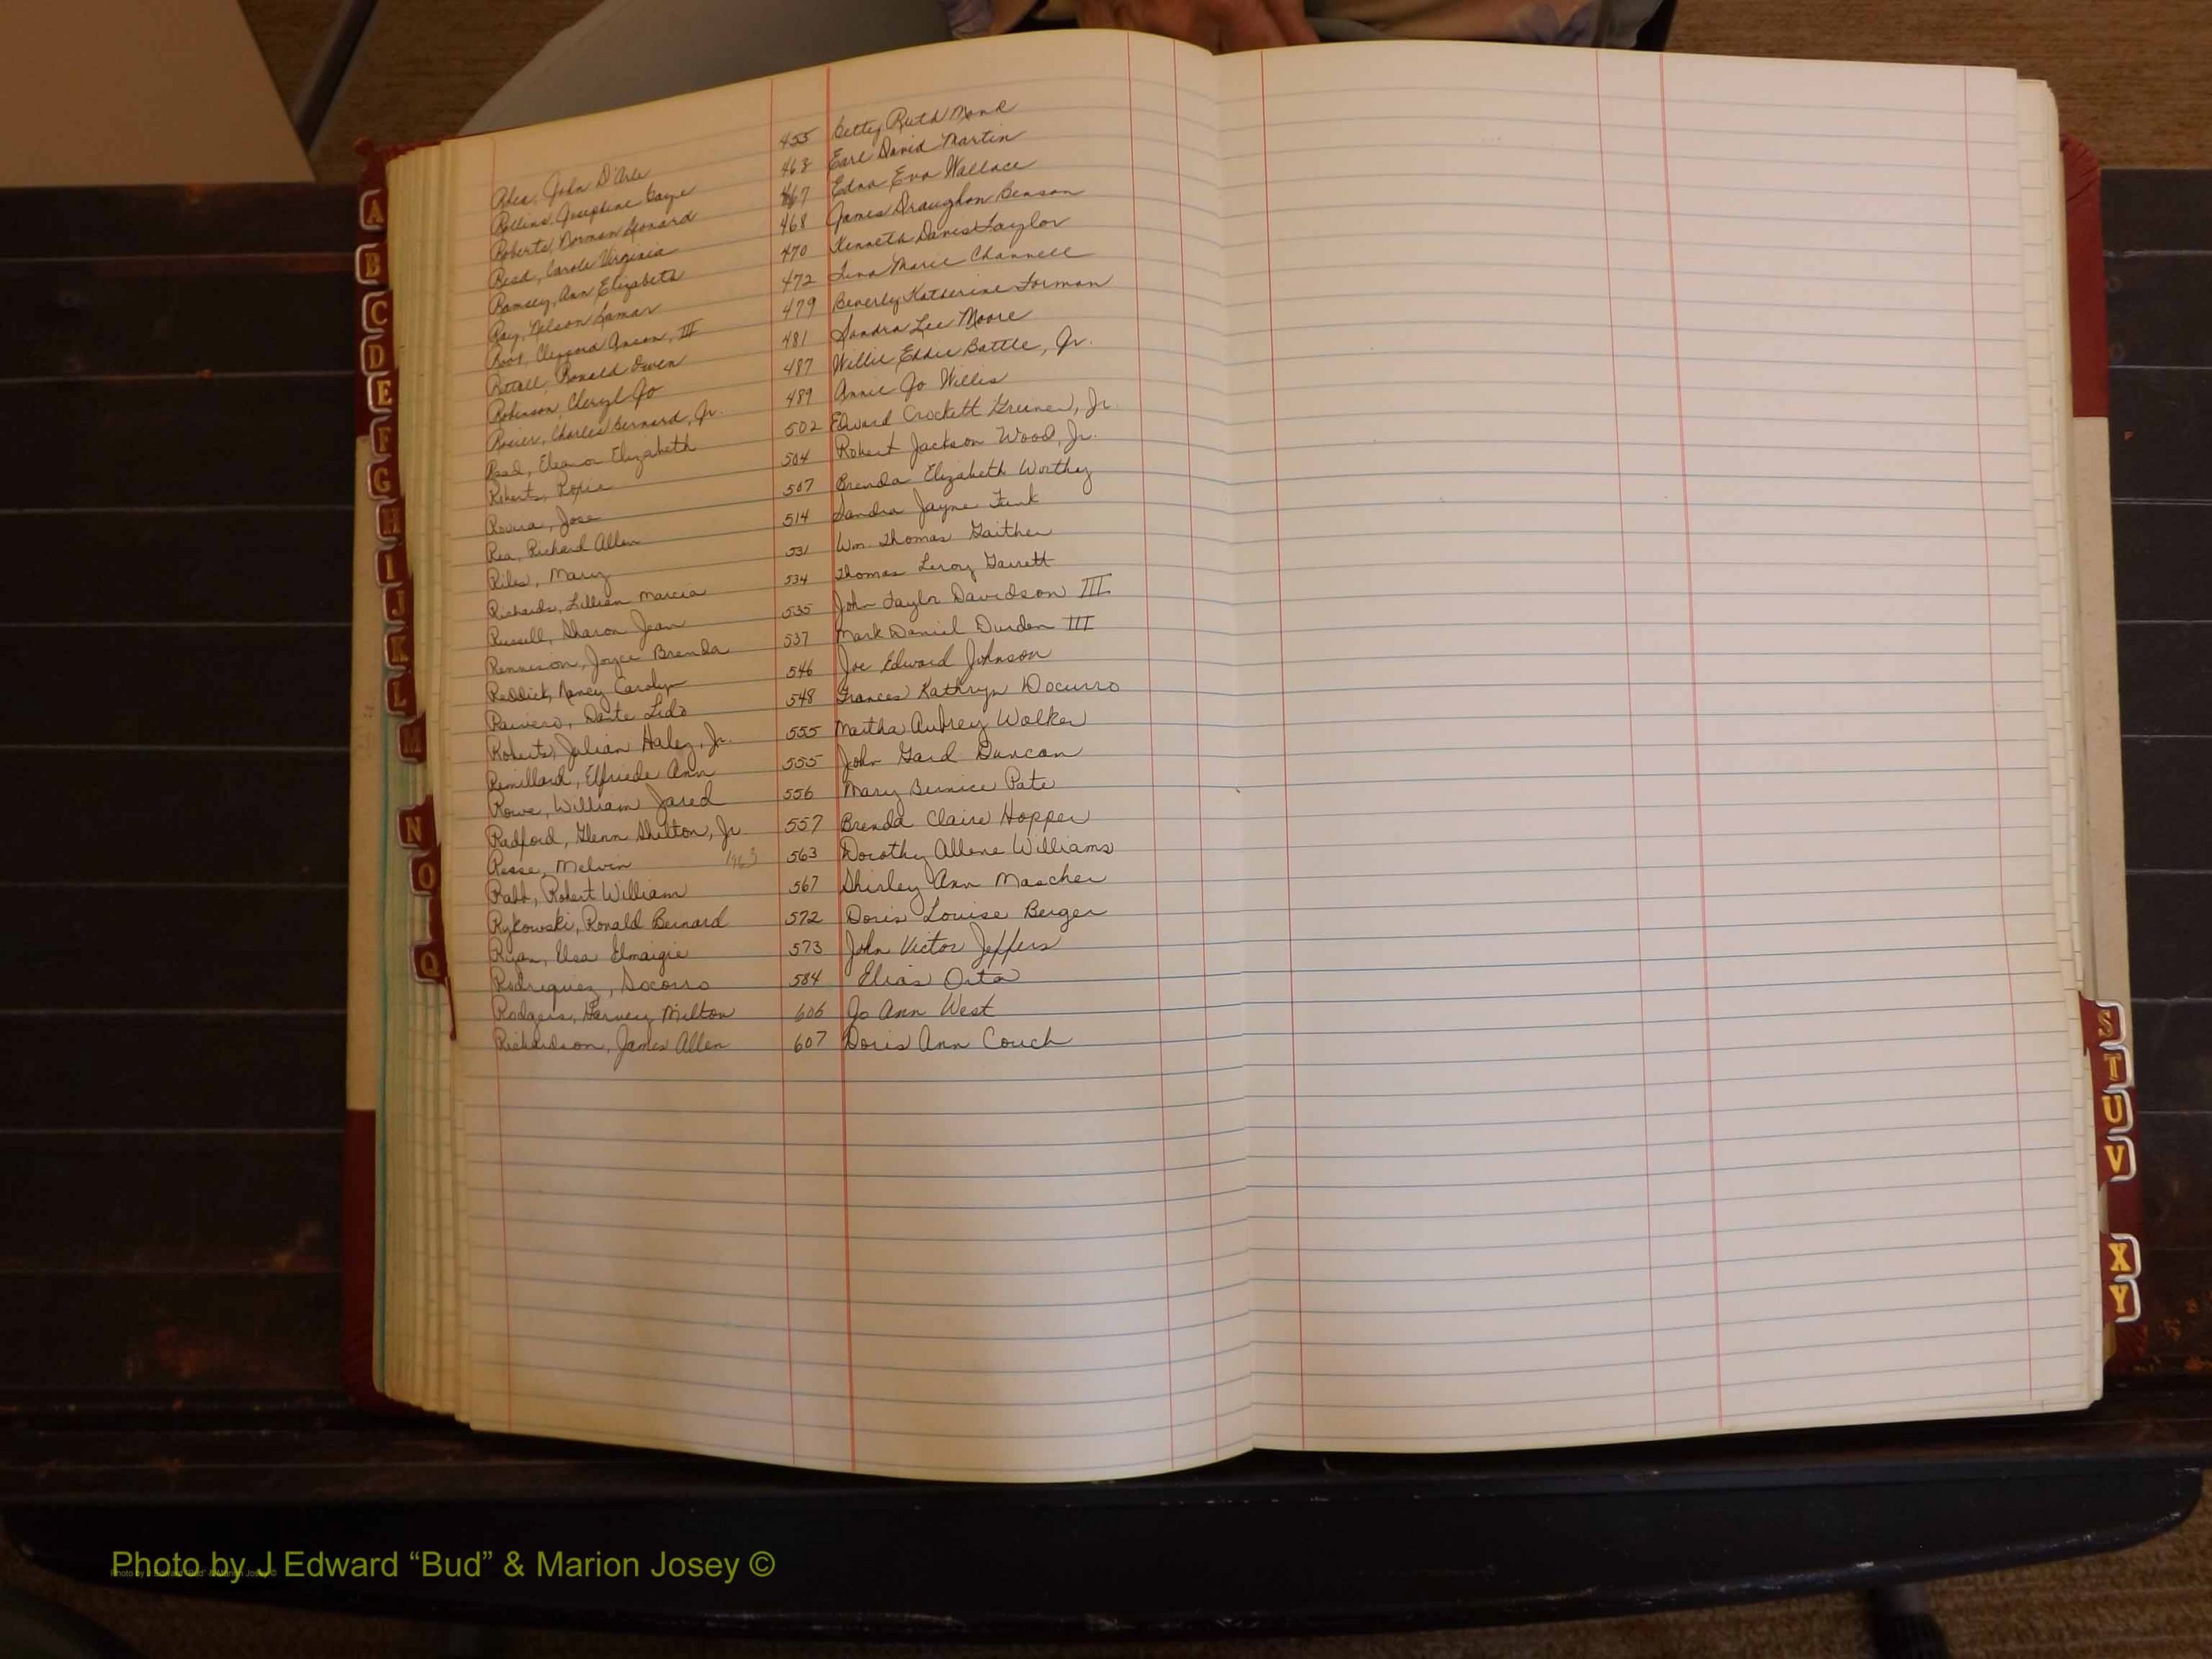 Rhea, John D'Arle 455 Betty Ruth Mond
Rollins, Josephine Faye 463 Earl David Martin
Roberts, Norman Leonard 467 Edna Eva Wallace
Read, Carole Virginia 468 James Draughon Benson
Ramsey, Ann Elizabeth 470 Kenneth Davis Taylor
Ray, Nelson Lamar 472 Lena Marie Channell
Root, Clifford Anson, III 479 Beverly Katherine Forman
Ronald Owen 481 Sandra Lee Moore
Robinson, Cheryl Jo 487 Willie Eddie Battle, Jr.
Rosier, Charles Bernard, Jr. 489 Annie Jo Willis
Read, Eleanor Elizabeth 502 Edward Crockett Greene, Jr.
Roberts, Roxie 504 Robert Jackson Wood, Jr.
Rovira, Jose 507 Brenda Elizabeth Worthy
Rea, Richard Allen 514 Sandra Jayne Funk
Riles, Mary 531 Wm. Thomas Gaither
Richards, Lillian Marcia 534 Thomas Leroy Garrett
Russell, Sharon Jean 535 John Taylor Davidson III
Rennison, Joyce Brenda 537 Mark Daniel Durden III
Reddick, Nancy Carolyn 546 Joe Edward Johnson
Rainero, Dante Lido 548 Frances Kathryn Docurro
Roberts, Julian Haley, Jr. 555 Martha Aubrey Walker
Remillard, Elfriede Ann 555 John Gard Duncan
Rowe, William Jared 556 Mary Bernice Pate
Radford, Glenn Shelton, Jr. 557 Brenda Claire Hopper
Resse, Melvin 1963 563 Dorothy Allene Williams
Rabb, Robert William 567 Shirley Ann Mascher
Rykowski, Ronald Bernard 572 Doris Louise Berger
Ryan, Usa Elmaigie 573 John Victor Jeffers
Rodriquez, Socorro 584 Elias Orta
Rodgers, Harvey Milton 606 Jo Ann West
Richardson, James Allen 607 Doris Ann Couch
A
B
C
D
E
F
G
H
I
J
K
L
M
N
O
Q
S
T
U
V
X
Y
Photo by J Edward “Bud” & Marion Josey ©
Photo by J Edward "Bud" & Marion Josey ©